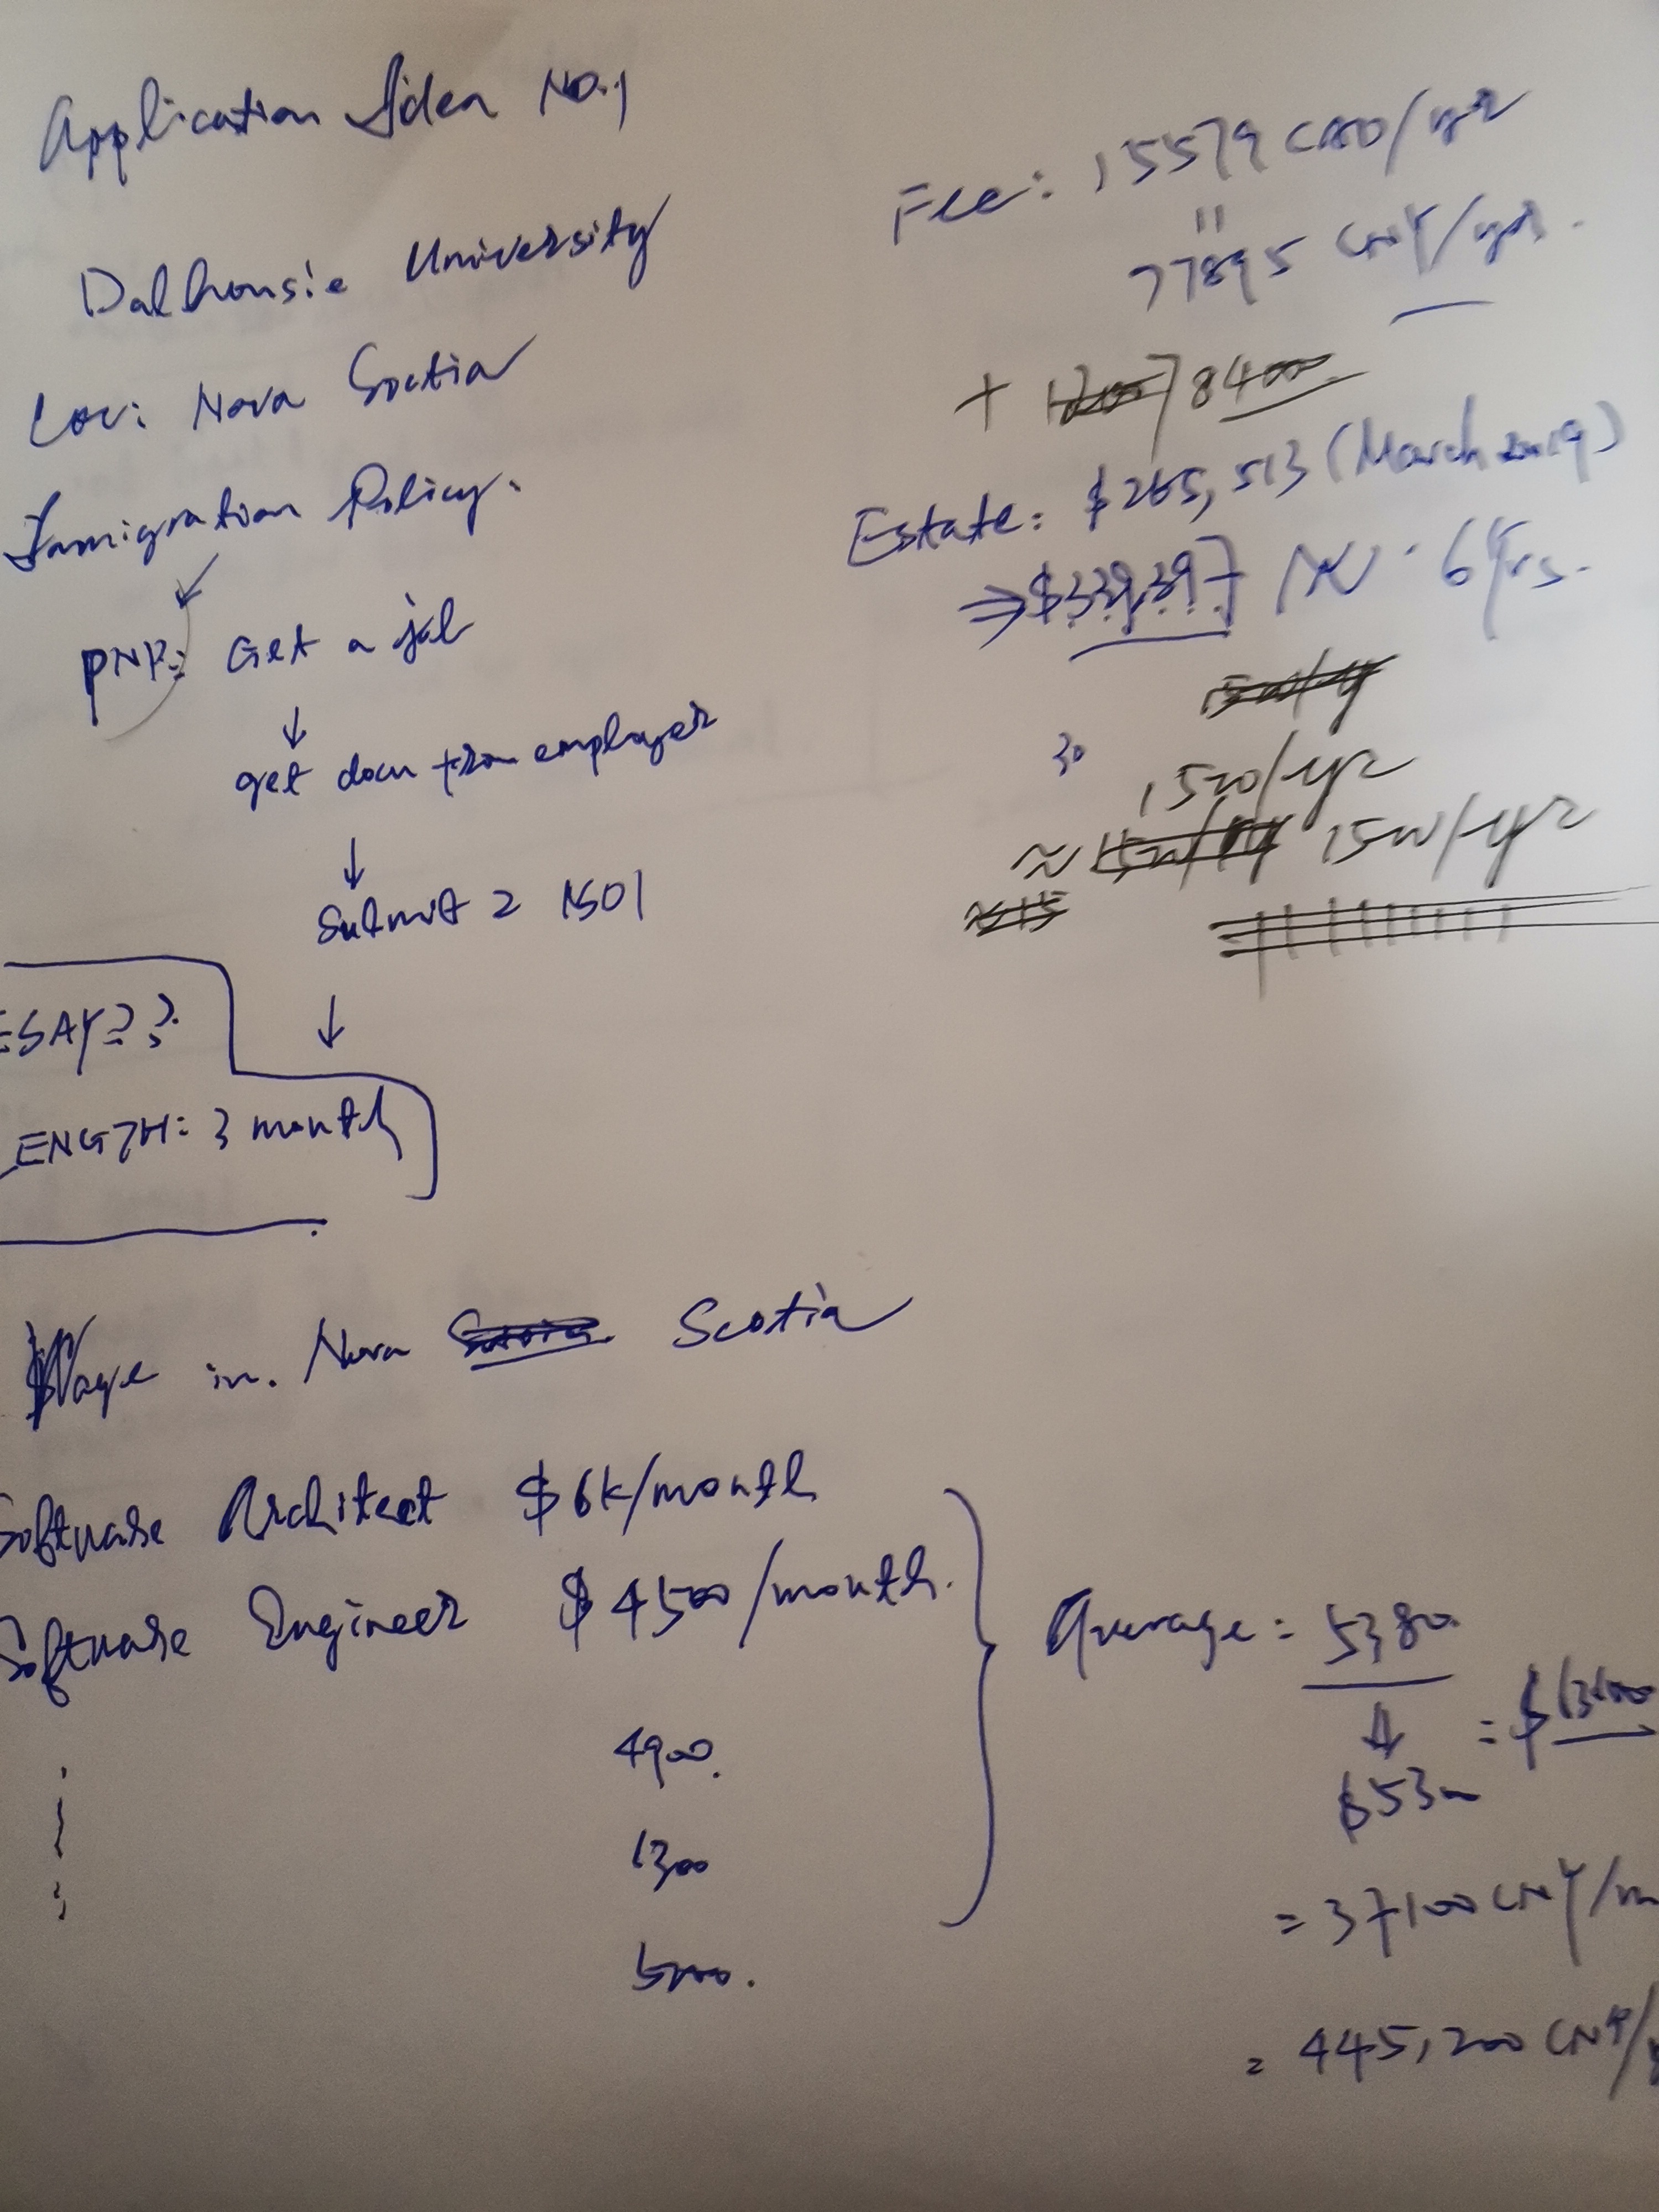 Application Idea NO.1
Dalhousie University
Loc: Nova Scotia
Immigration Policy.
PNP: Get a job
get docu from employer
submit 2 NSOI
ESSAY??
LENGTH: 3 month
Fee: 15579 CAD/yr
=
77895 CNY/yr.
+ 78400
Estate: $265,513 (March 2019)
⇒ $339,397 6 Yrs.
30
1520/yr
≈ 1500/yr
Wage in. Nova Scotia
Software Architect $6k/month
Software Engineer $4500/month.
4900.
5000.
Average = 5380
↓
$5300
= 37100 CNY/m
= 445,200 CNY/